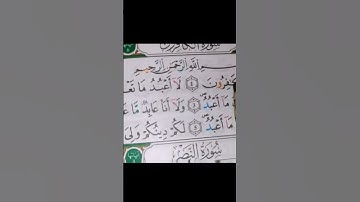 سُورَةُ الْكَافِرُونَ
بِسْمِ اللَّهِ الرَّحْمَٰنِ الرَّحِيمِ
لَا أَعْبُدُ مَا
مَا أَعْبُدُ وَلَا أَنَا عَابِدٌ مَّا
مَا أَعْبُدُ لَكُمْ دِينُكُمْ وَلِيَ
سُورَةُ النَّصْرِ